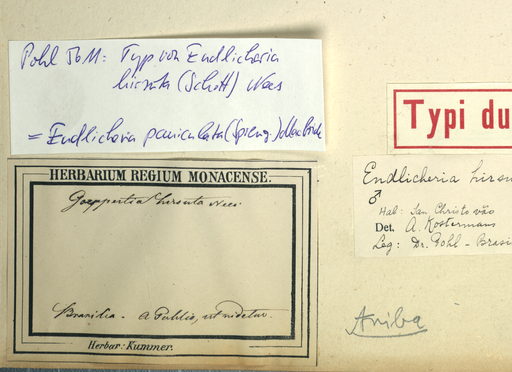 Pohl 5611: Typ von Endlicheria
hirsuta (Schott) Nees
= Endlicheria paniculata (Spreng.) Macbride
HERBARIUM REGIUM MONACENSE.
Goeppertia hirsuta Nees
Brasilia. a Pohlio, ut videtur.
Herbar: Kummer.
Typi du
Endlicheria hirsu
♂
Hab: San Christovão
Det. A. Kostermans
Leg: Dr. Pohl - Brasi
Aniba